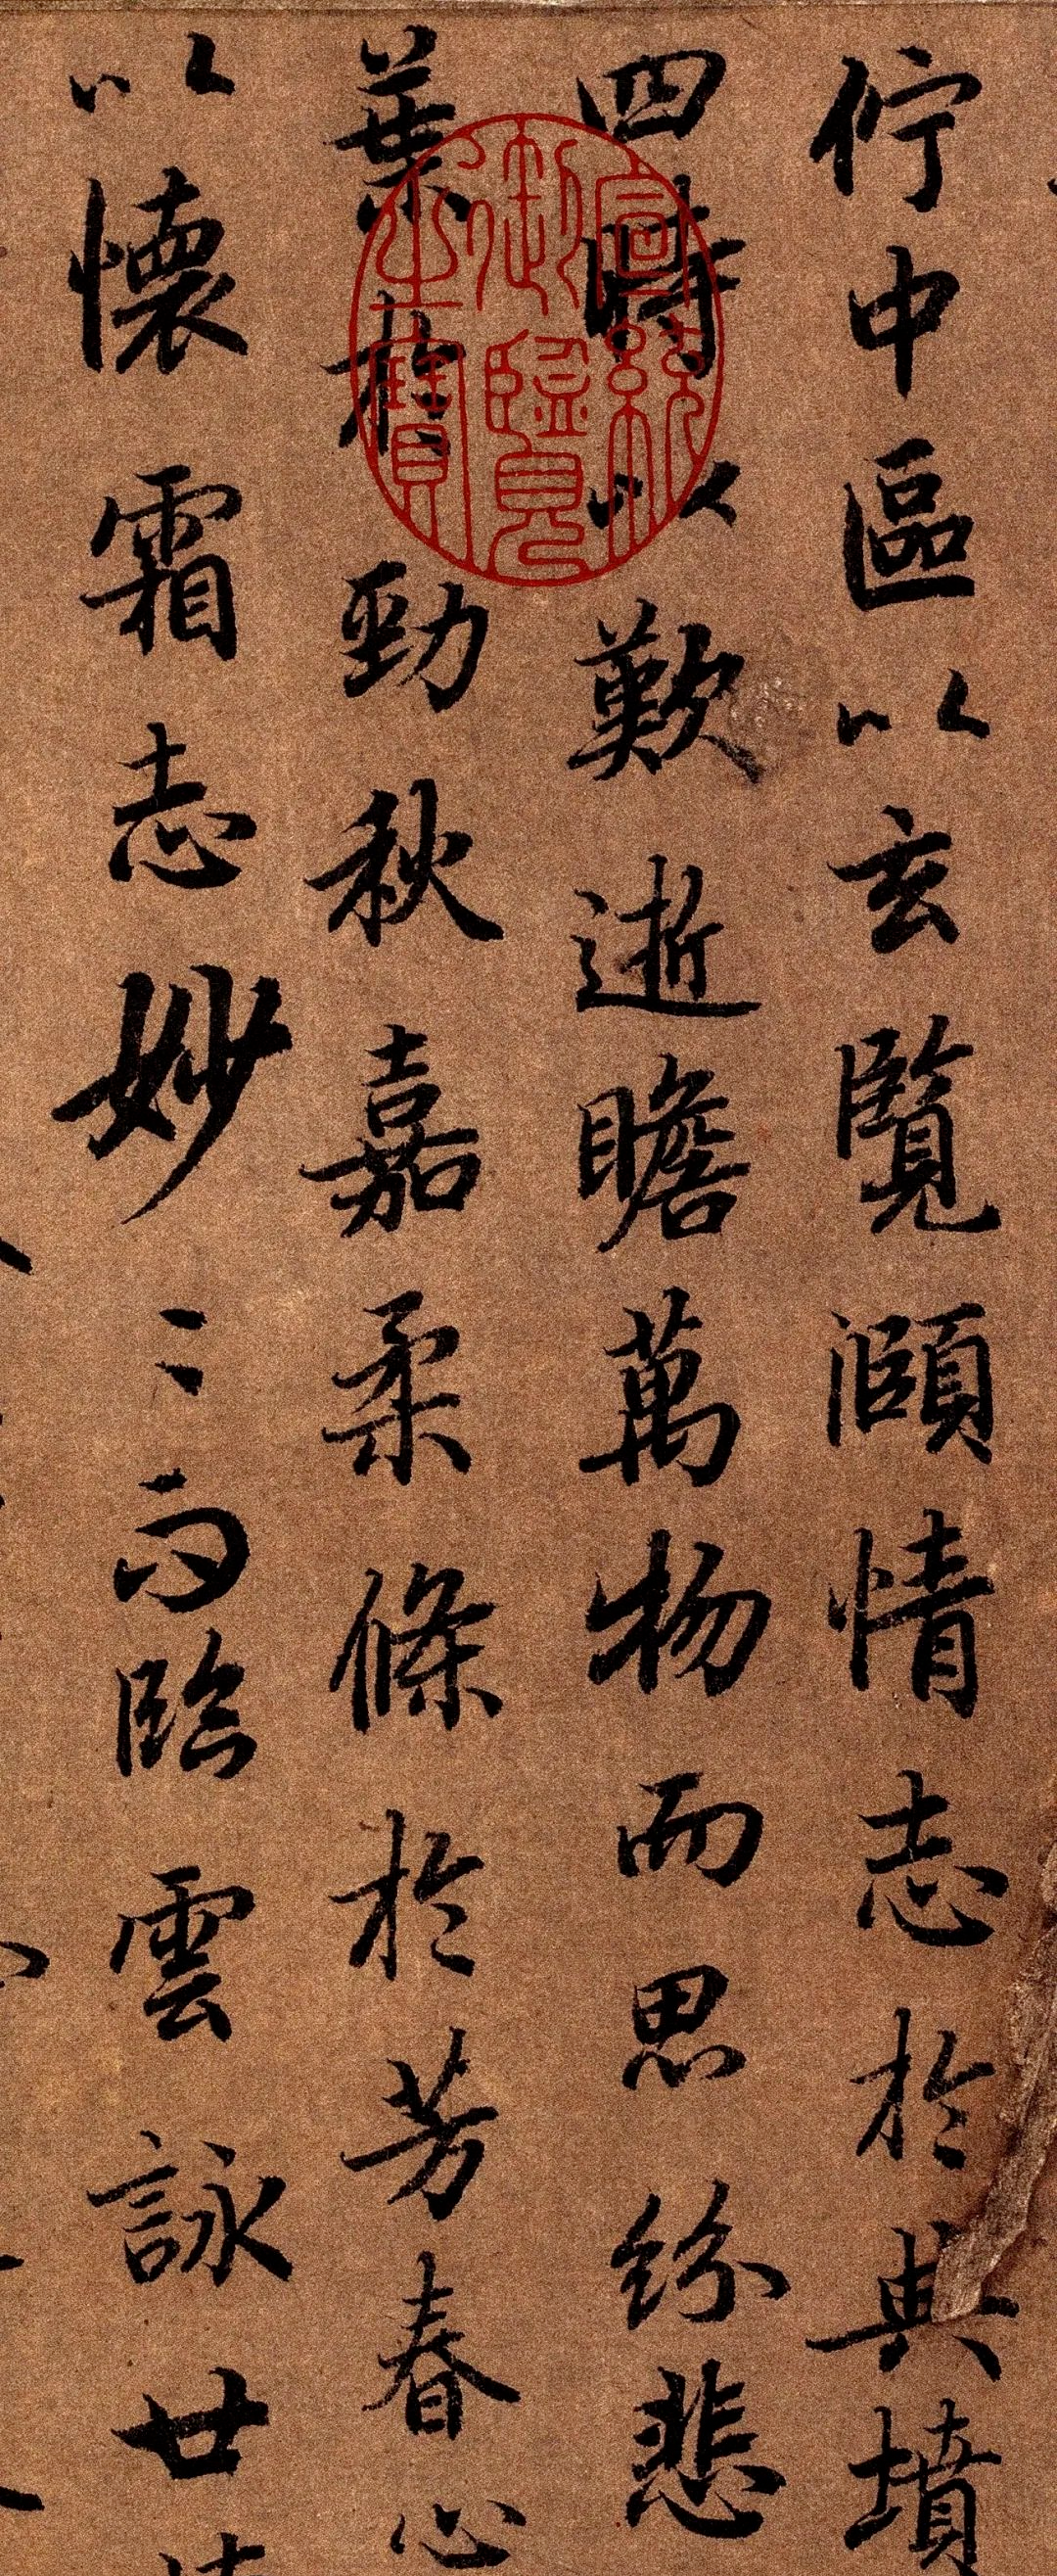 佇中區以玄覽頤情志於典墳
四時以歎逝瞻萬物而思紛悲
葉於勁秋嘉柔條於芳春心
以懷霜志妙〻而臨雲詠廿
宣統御覽之寶